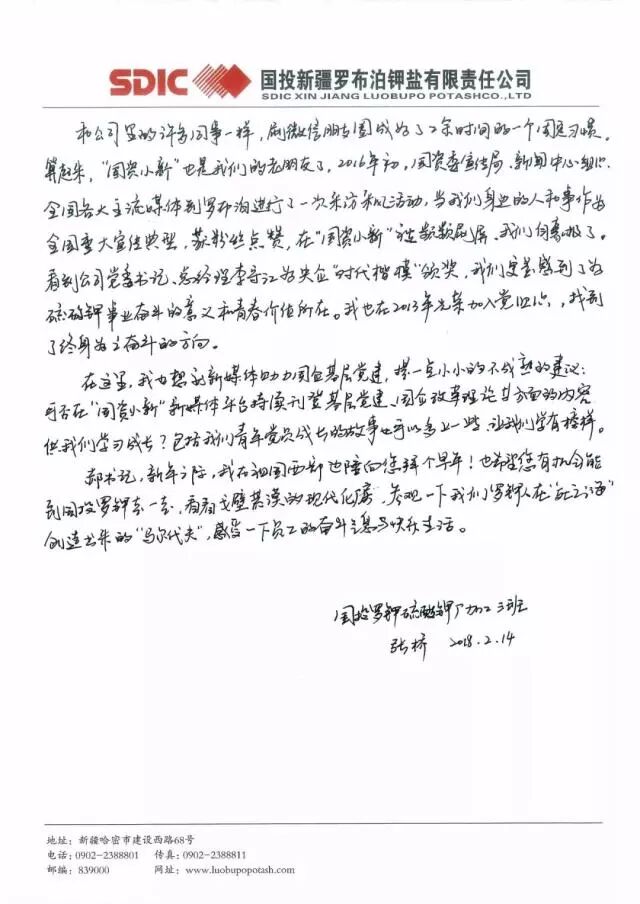 SDIC 国投新疆罗布泊钾盐有限责任公司
SDIC XIN JIANG LUOBUPO POTASHCO.,LTD
和公司里的许多同事一样，刷微信朋友圈成为了工余时间的一个固定习惯。
算起来，“国资小新”也是我们的老朋友了，2016年初，国资委宣传局、新闻中心组织
全国各大主流媒体到罗布泊进行了一次采访采风活动，当我们身边的人和事作为
全国重大宣传典型，获粉丝点赞，在“国资小新”这频频刷屏，我们自豪极了。
看到公司党委书记、总经理李守江为央企“时代楷模”领奖，我们更是感到了为
硫酸钾事业奋斗的意义和青春价值所在。我也在2013年光荣加入党组织，找到
了终身为之奋斗的方向。
在这里，我也想就新媒体助力国企基层党建，提一点小小的不成熟的建议：
可否在“国资小新”新媒体平台持续刊登基层党建、国企改革理论等方面的内容
供我们学习成长？包括我们青年党员成长的故事也可以多一些，让我们学有榜样。
郝书记，新年之际，我在祖国西部也陪向您拜个早年！也希望您有机会能
到国投罗钾去一去，看看戈壁荒漠的现代化厂，参观一下我们罗钾人在“死亡之海”
创造出来的“马尔代夫”，感受一下员工的奋斗之志与快乐生活。
国投罗钾硫酸钾厂加工三班
张桥 2018.2.14
地址：新疆哈密市建设西路68号
电话：0902-2388801 传真：0902-2388811
邮编：839000 网址：www.luobupopotash.com